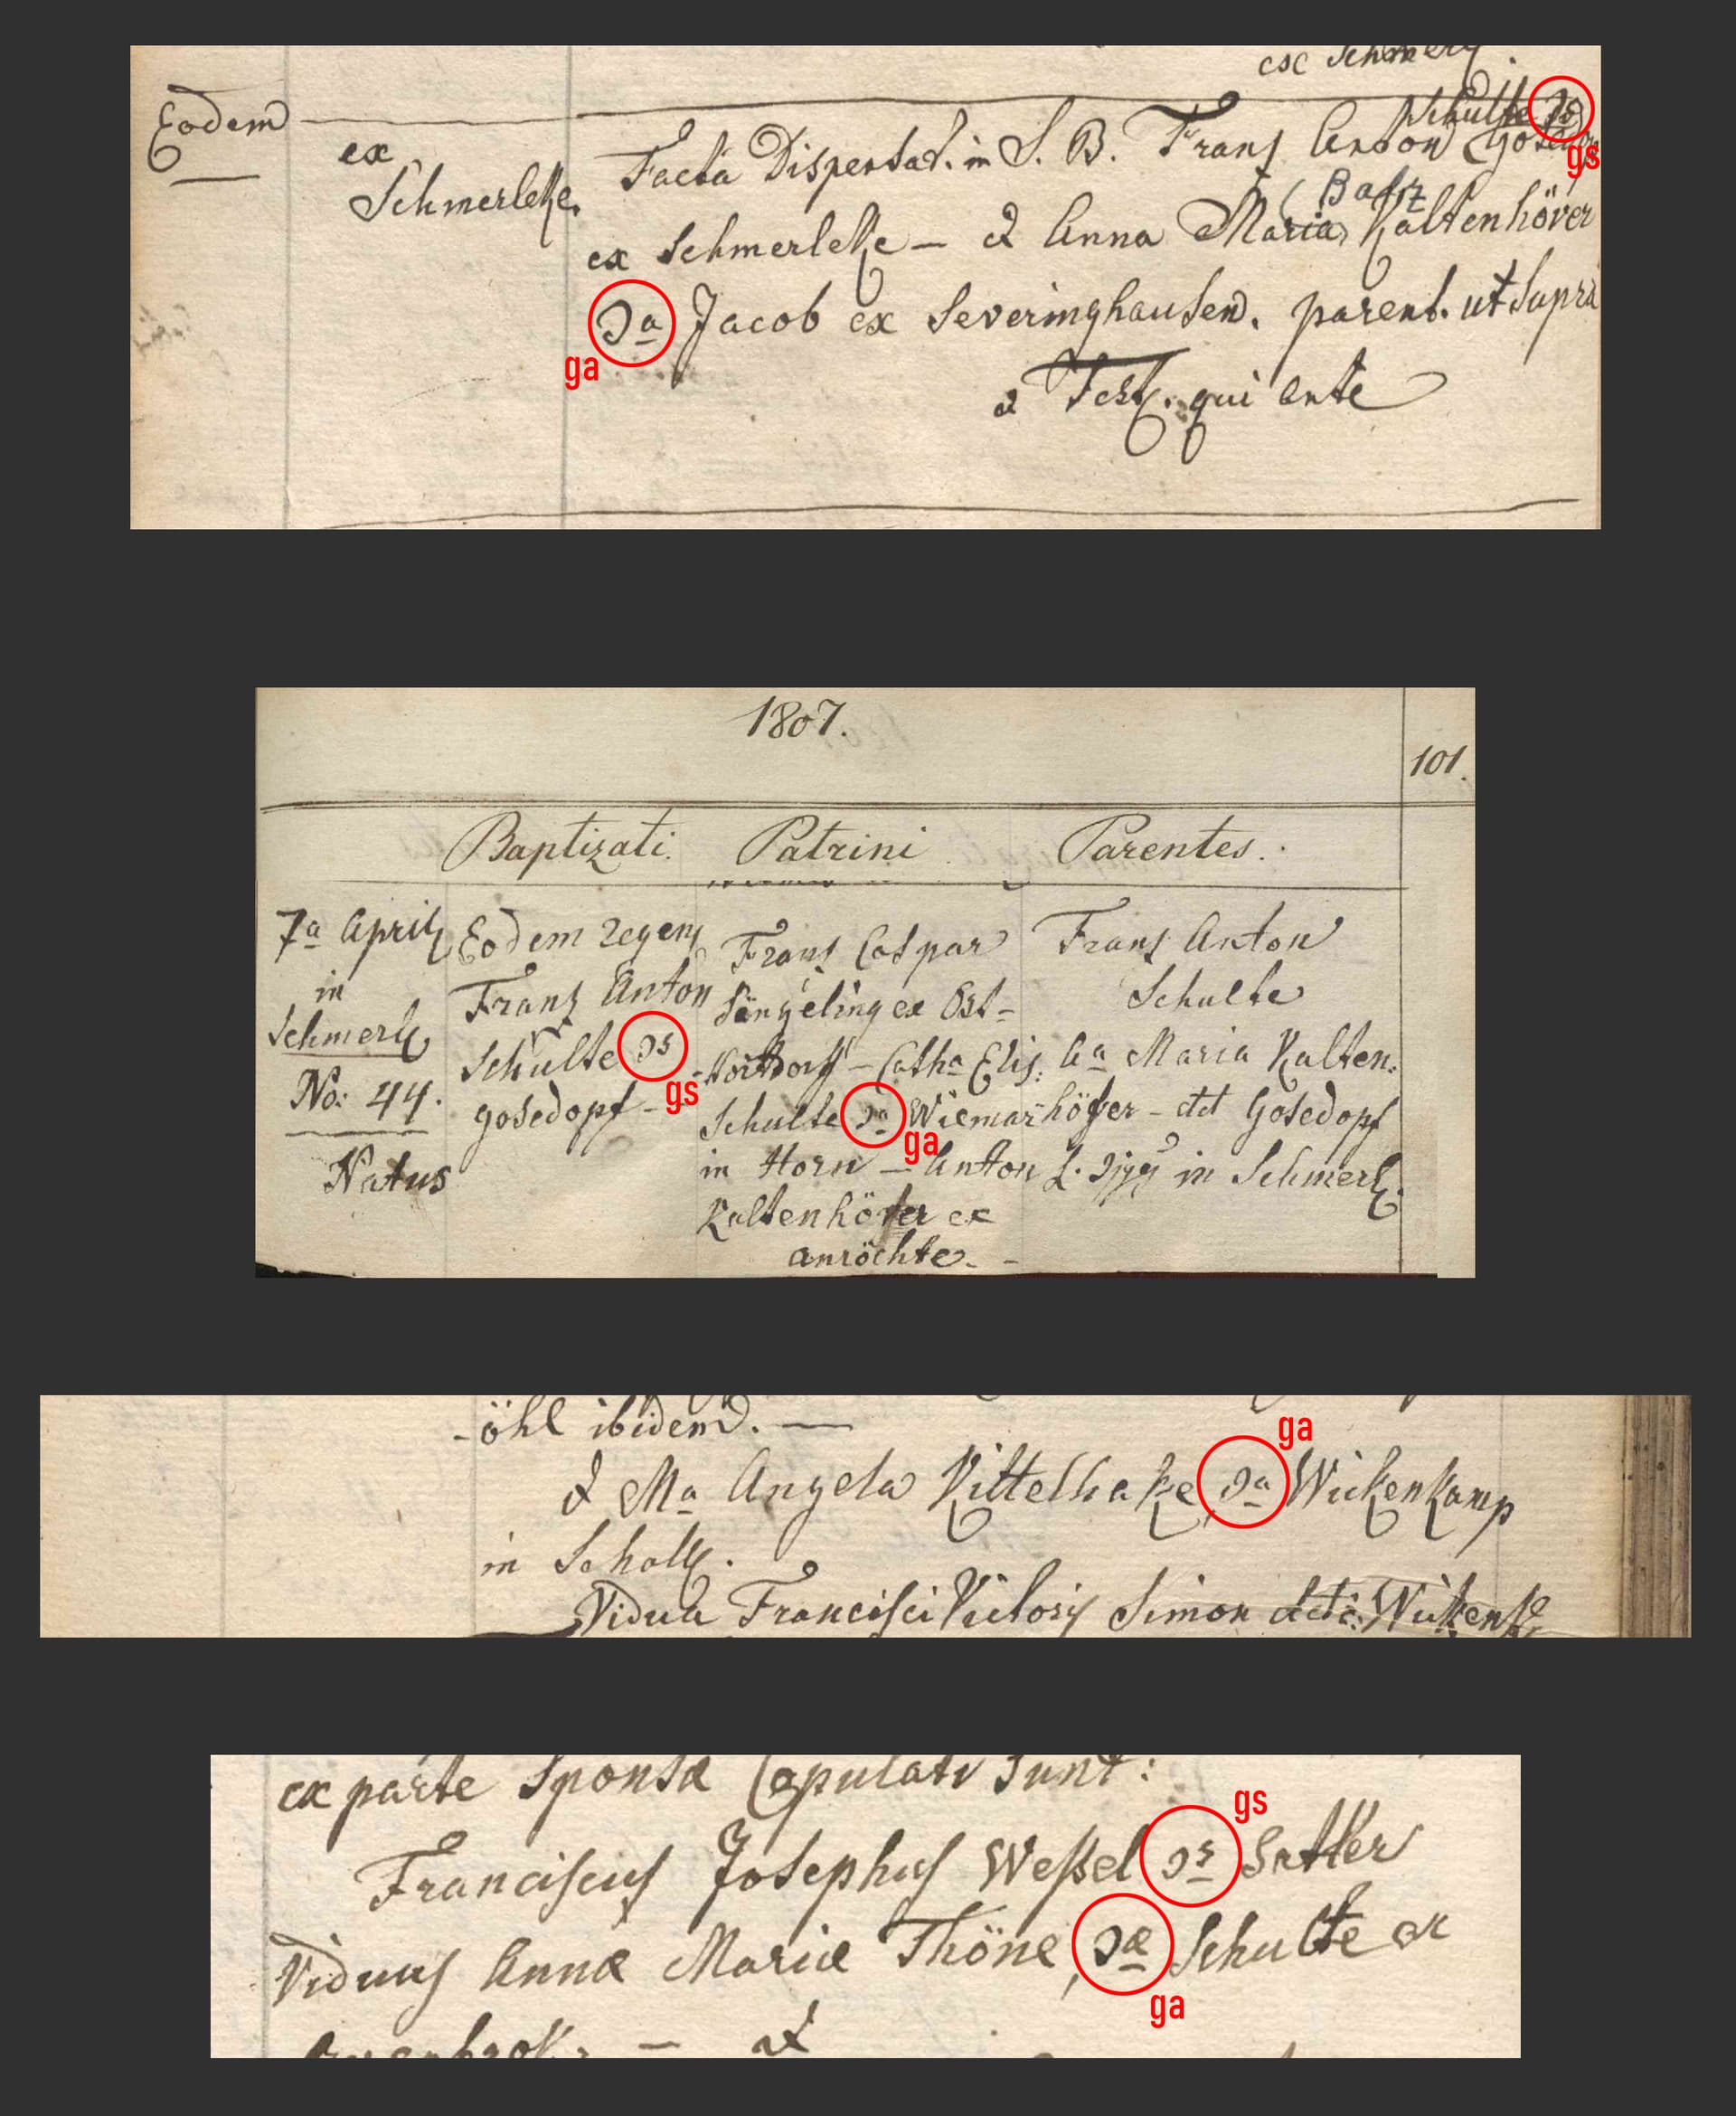 ex Schmerl.
Eodem
ex
Schmerleke.
Schulte ɔs
gs
Facta Dispensat. in S. B. Franz Anton Gosedopf
(Bahz
ex Schmerleke – & Anna Maria Kaltenhöver
ɔa Jacob ex Severinghausen. parent. ut supra
ga
& Test. qui ante
1807.
101.
Baptizati. Patrini Parentes.
7a April
in
Schmerl.
No: 44.
Natus
Eodem regens
Franz Anton
Schulte ɔs
gs
gosedopf –
Franz Caspar
Süngeling ex Ost-
- Cathа Elis.
Schulte ɔa Wiemar
ga
in Horn – Anton
Kaltenhöfer ex
anröchte. –
Franz Anton
Schulte
Aa Maria Kalten-
höfer – dct Gosedopf
L. in Schmerl.
-öhl ibidem. —
ga
& Ma Angela Kittelhake ɔa Wickenkamp
in Schall.
Vidua Francisci Victoris Simon dicti Wickenk.
ex parte Sponsæ Copulati sunt:
gs
Franciscus Josephus Weßel ɔs Sattler
Viduus Annæ Mariæ Thöne, ɔæ Schulte ex
ga
– et